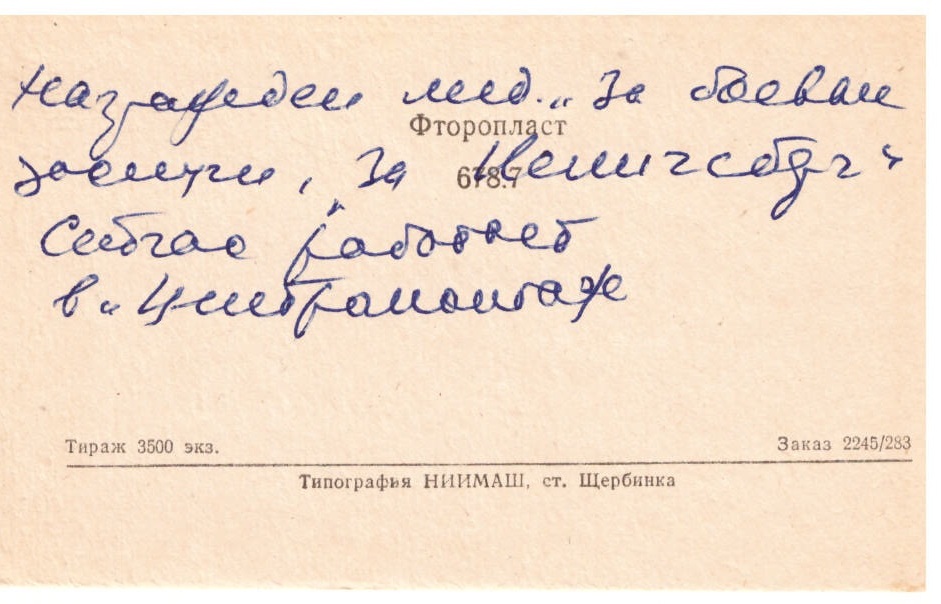 Награжден мед. „За боевые
Фторопласт
заслуги, За Кенигсберг“
678.7
Сейчас работает
в „Центромонтаже
Тираж 3500 экз.
Заказ 2245/283
Типография НИИМАШ, ст. Щербинка